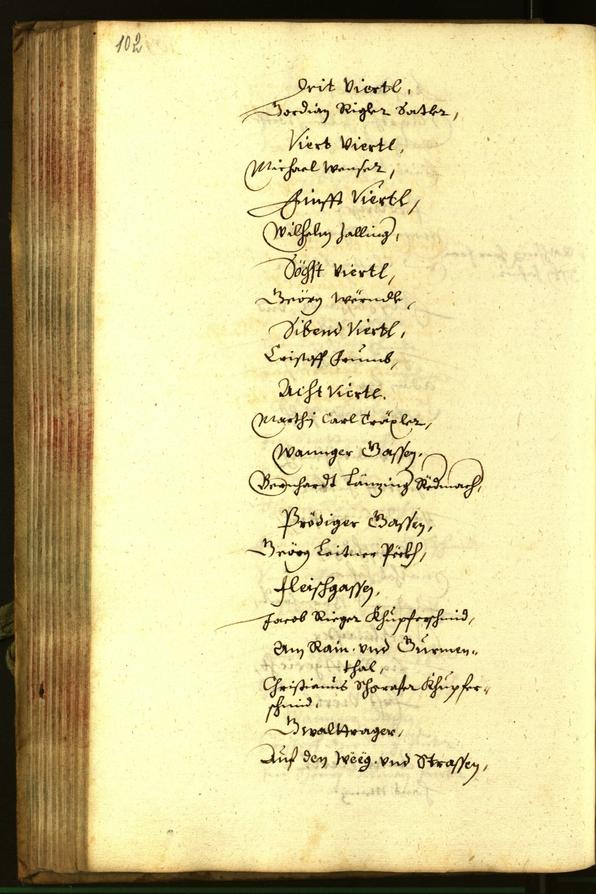 102
Drit Viertl,
Gordian Rigler Satler,
Viert Viertl,
Michael Wenser,
Finfft Viertl,
Wilhelm Zalling,
Söchst Viertl,
Geörg Werndle,
Sibend Viertl,
Cristoff Frumb,
Acht Viertl.
Marthin Carl Träxler,
Wannger Gassen,
Bernhardt Länzing Redmach,
Prödiger Gassen,
Geörg Leitner Peckh,
Fleischgassen,
Jacob Rieger Khupferschmid,
Am Rain und Gurmen-
thal,
Christianus Khupfer-
schmid,
Gwalttrager,
Auf den Weeg und Strassen,